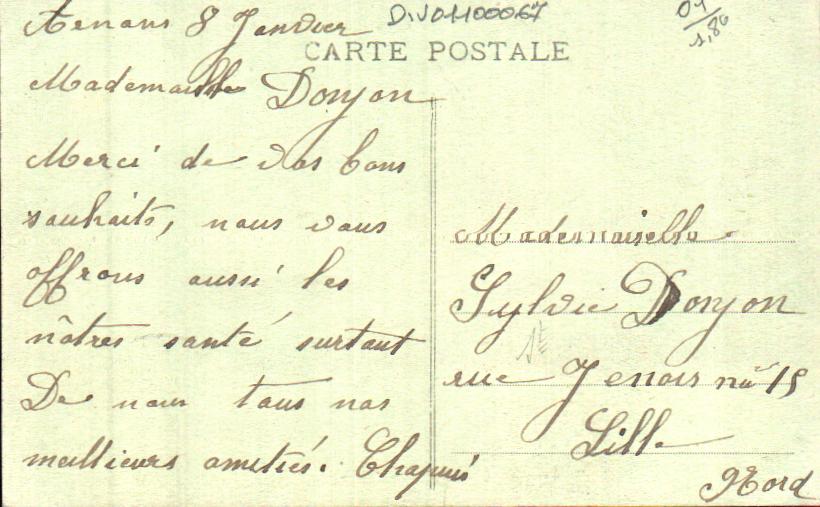 8 Janvier
D.V01100067
01/1,80
CARTE POSTALE
Mademoiselle Donjon
Merci de vos bons
souhaits, nous vous
offrons aussi les
nôtres santé surtout
De nous tous nos
meilleurs amitiés. Chapuis
Mademoiselle
Sylvie Donjon
rue Jenois nº 15
Lille
Nord